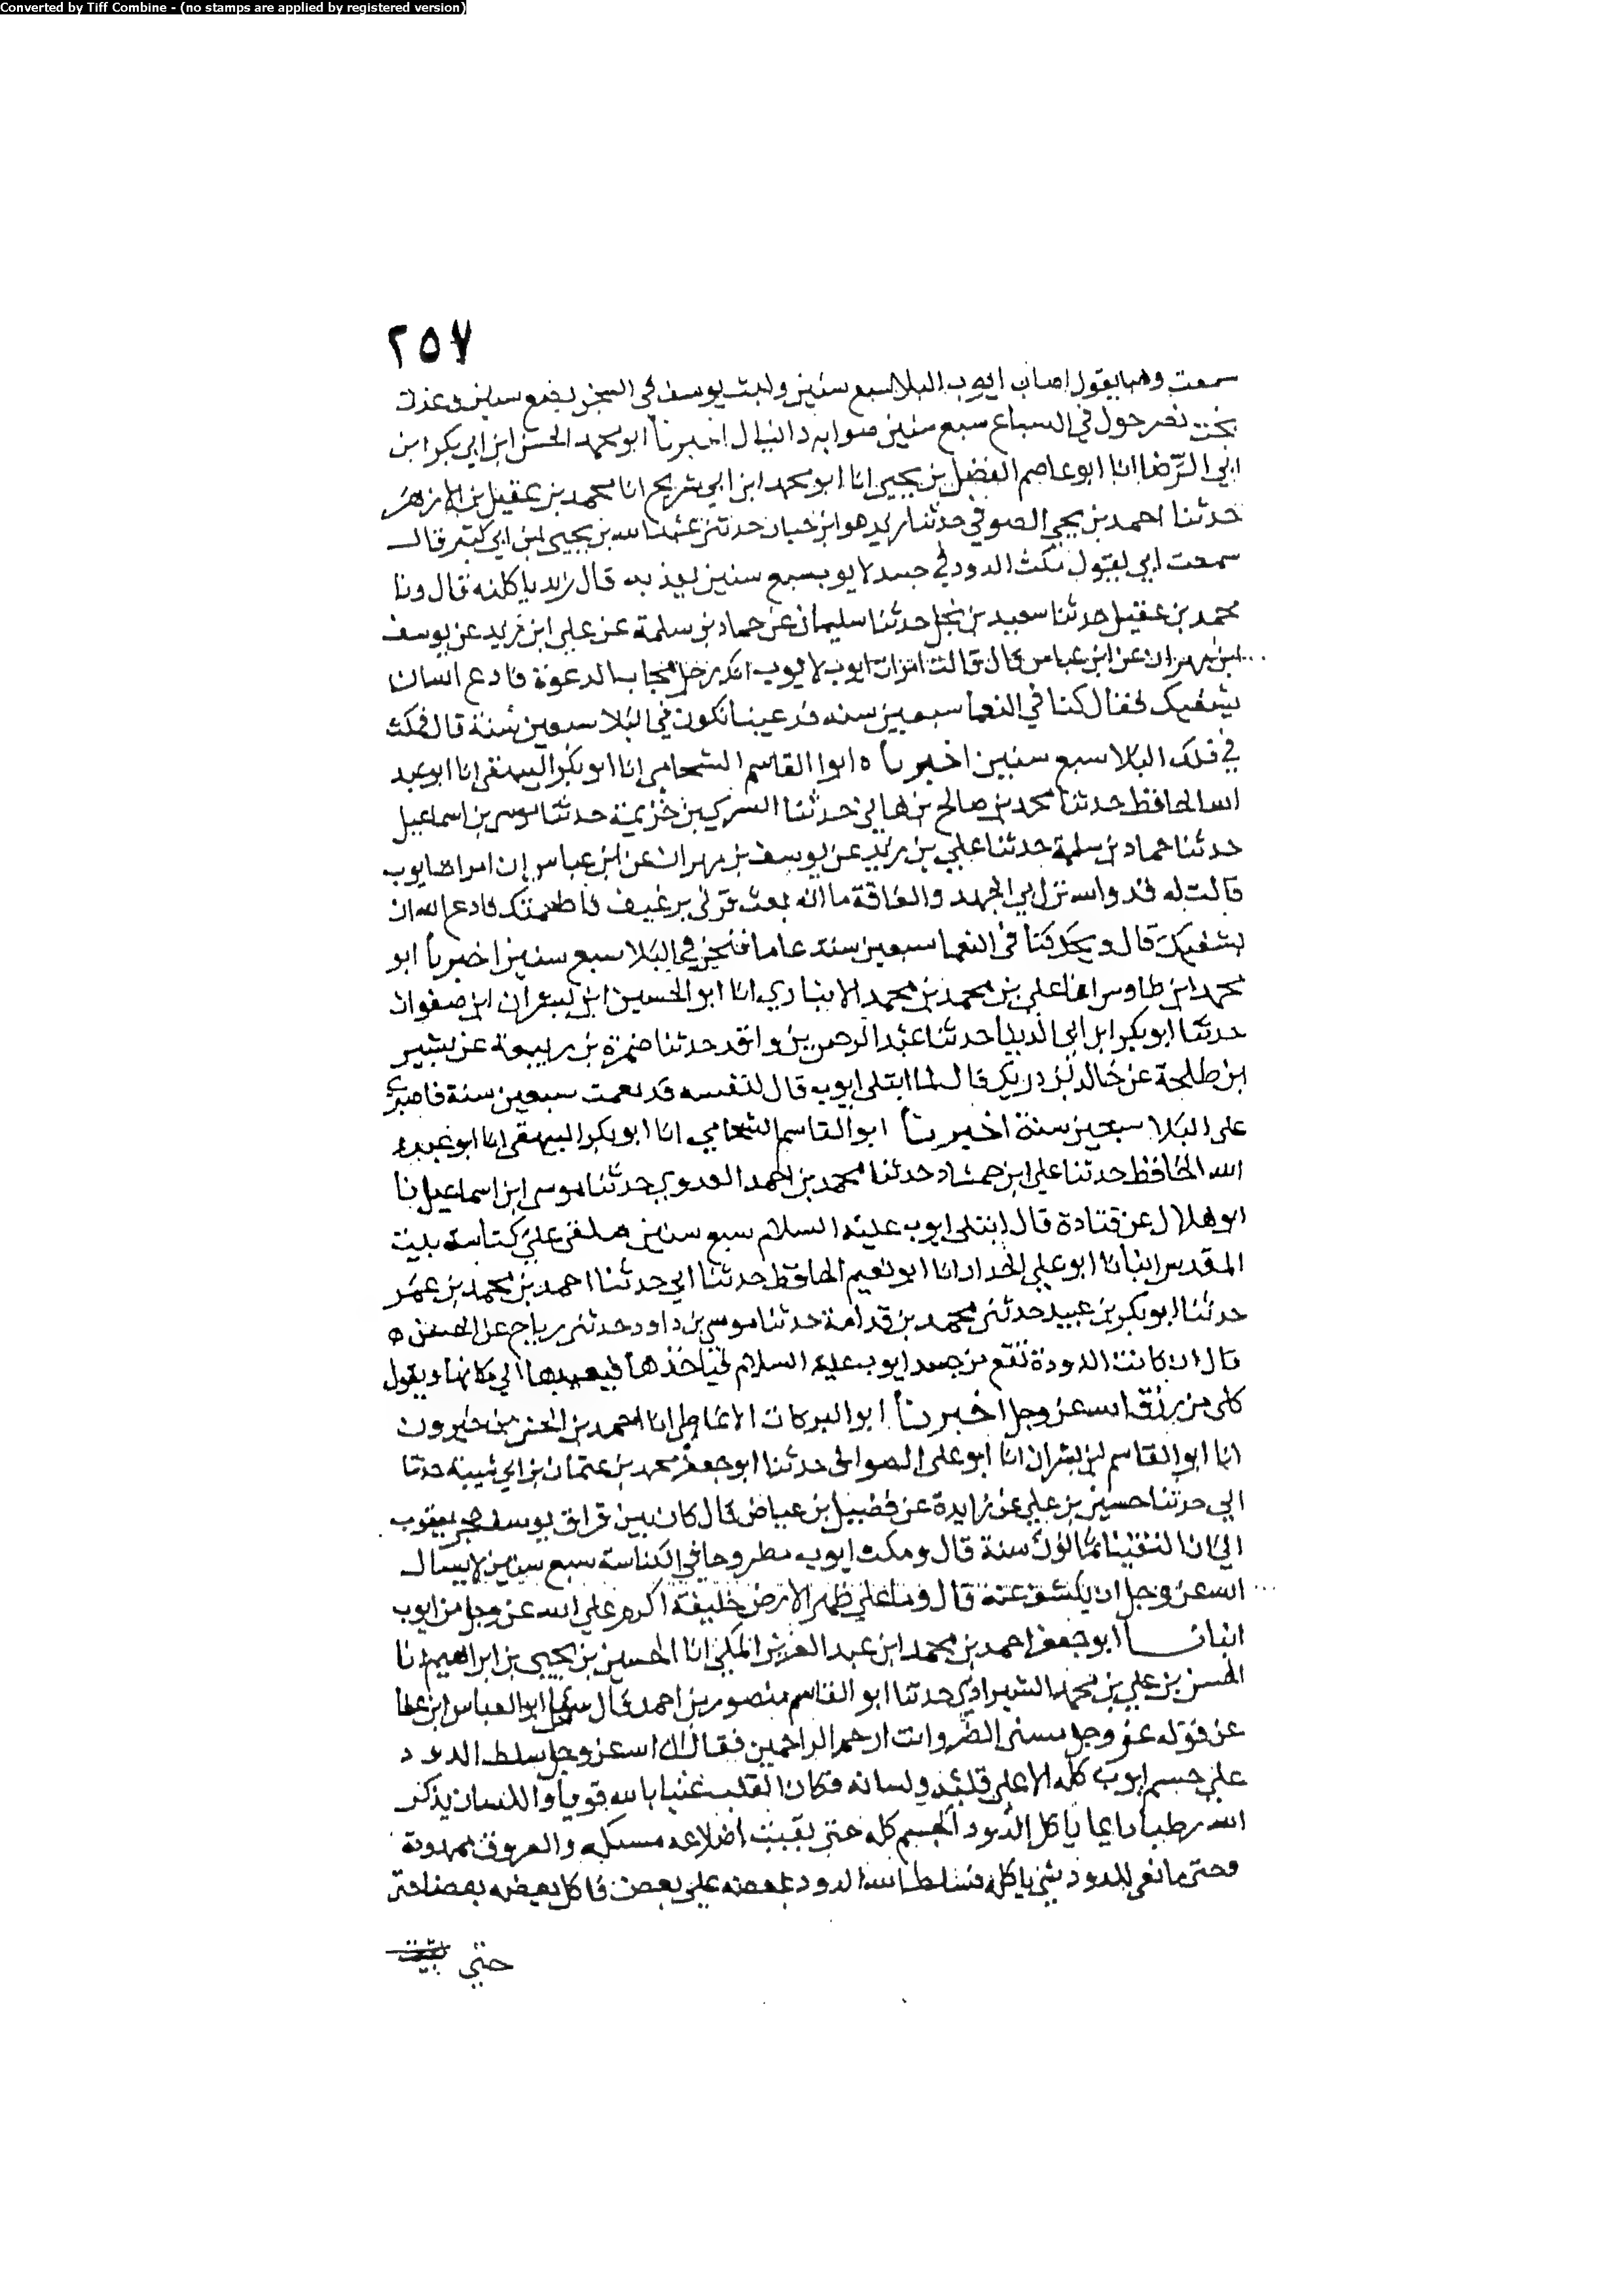 Converted by Tiff Combine - (no stamps are applied by registered version)
٢٥٧
سمعت وهبا يقول اصاب ايوب البلا سبع سنين ولبث يوسف في السجن بضع سنين وعذب
بخت نصر حول في السباع سبع سنين اخبرنا ابو محمد الحسن ابن ابي بكر ابن
ابي الرضا انا ابو عاصم الفضل بن يحيى انا ابو محمد ابن ابي شريح انا محمد بن عقيل بن الازهر
حدثنا احمد بن يحيى الصوفي حدثنا زيد هو ابن حباب حدثني عبد الله بن يحيى ابن ابي كثير قال
سمعت ابي يقول مكث الدود في جسد ايوب سبع سنين يعذبه قال زيد ياكلنه قال ونا
محمد بن عقيل حدثنا سعيد بن حدثنا سليمان عن حماد بن سلمة عن علي ابن زيد عن يوسف
ابن مهران عن ابن عباس قال قالت امراة ايوب لايوب انك رجل مجاب الدعوة فادع الله ان
يشفيك فقال كنا في النعما سبعين سنه فدعينا نكون في البلا سبعين سنة قال فمكث
في ذلك البلا سبع سنين اخبرنا ابوا القاسم الشحامي انا ابو بكر البيهقي انا ابو عبد
الله الحافظ حدثنا محمد بن صالح بن هاني حدثنا السري بن خزيمة حدثنا موسى بن اسماعيل
حدثنا حماد بن سلمة حدثنا علي بن زيد عن يوسف بن مهران عن ابن عباس ان امراة ايوب
قالت له قد والله نزل بي الجهد والفاقة ما ان بعت قرني برغيف فاطعمتك فادع الله ان
يشفيك قال ويحك كنا في النعما سبعين سنة عاما فنحن في البلا سبع سنين اخبرنا ابو
محمد ابن طاوس انا علي بن محمد بن محمد الانباري انا ابو الحسين ابن بشران ابن صفوان
حدثنا ابو بكر ابن ابي الدنيا حدثنا عبد الرحمن بن واقد حدثنا ضمرة بن ربيعة عن بشير
ابن طلحة عن خالد بن دريك قال لما ابتلي ايوب قال لنفسه قد نعمت سبعين سنة فاصبري
على البلا سبعين سنة اخبرنا ابو القاسم الشحامي انا ابو بكر البيهقي انا ابو عبد
الله الحافظ حدثنا علي ابن حمشاد حدثنا محمد بن احمد العدوي حدثنا موسى ابن اسماعيل نا
ابو هلال عن قتادة قال ابتلي ايوب عليه السلام سبع سنين ملقى على كناسة بيت
المقدس انبانا ابو علي الحداد انا ابو نعيم الحافظ حدثنا ابي حدثنا احمد بن محمد بن عمر
حدثنا ابو بكر بن عبيد حدثني محمد بن قدامة حدثنا موسى بن داود حدثني رياح عن الحسن ه
قال ان كانت الدودة تقع من جسد ايوب عليه السلام فياخذها فيعيدها الى مكانها ويقول
كلي من رزق الله عز وجل اخبرنا ابو البركات الانماطي انا احمد بن الحسن بن خيرون
انا ابو القاسم بن بشران انا ابو علي الصواف حدثنا ابو جعفر محمد بن عثمان بن ابي شيبة حدثنا
ابي حدثنا حسين بن علي عن زايدة عن فضيل بن عياض قال كان بين فراق يوسف حجر يعقوب
الى ان التقينا ثمانون سنة قال ومكث ايوب مطروحا في الكناسة سبع سنين لا يسال
الله عز وجل ان يكشف عنه قال وما على ظهر الارض خليفة اكرم على الله عز وجل من ايوب
انبانا ابو جعفر احمد بن محمد ابن عبد العزيز المكي انا الحسين بن يحيى بن ابراهيم انا
الحسن بن علي بن محمد الشيرازي حدثنا ابو القاسم منصور بن احمد قال سئل ابو العباس ابن عطا
عن قوله عز وجل مسني الضر وانت ارحم الراحمين فقال ان الله عز وجل سلط الدود
على جسم ايوب كله الا على قلبه ولسانه فكان القلب غنيا بالله قويا واللسان يذكر
الله رطبا دايما ياكل الدود الجسم كله حتى بقيت اضلاعه مسبكه والعروق ممدودة
وحتى ما بقي للدود شي ياكله فسلط الله الدود بعضه على بعض فاكل بعضه بعضا حتى
حتى بقيت